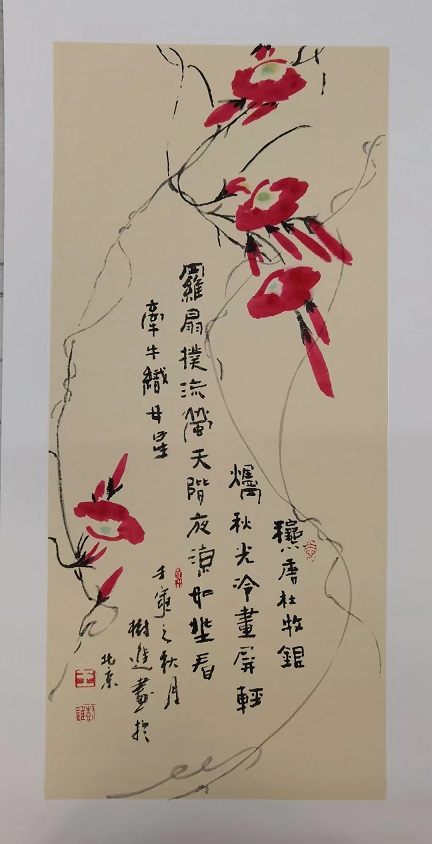 唐杜牧銀
燭秋光冷畫屏輕
羅扇撲流螢天階夜涼如坐看
牽牛織女星
壬寅之秋月
樹進畫於
北京
王